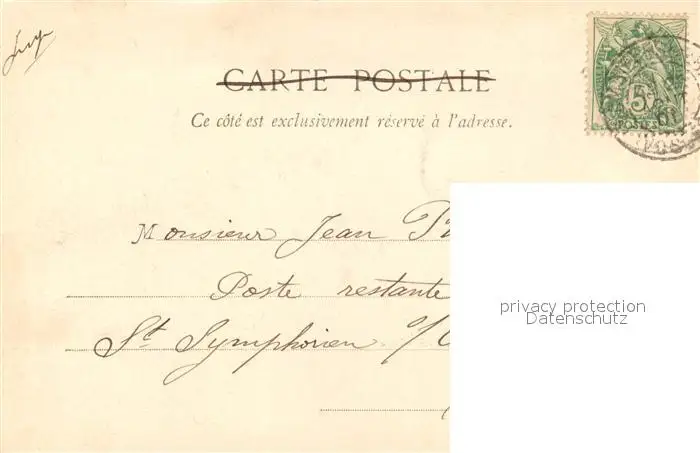 CARTE POSTALE
Ce côté est exclusivement réservé à l'adresse.
5
POSTES
Monsieur Jean
Poste restante
St Symphorien
privacy protection
Datenschutz